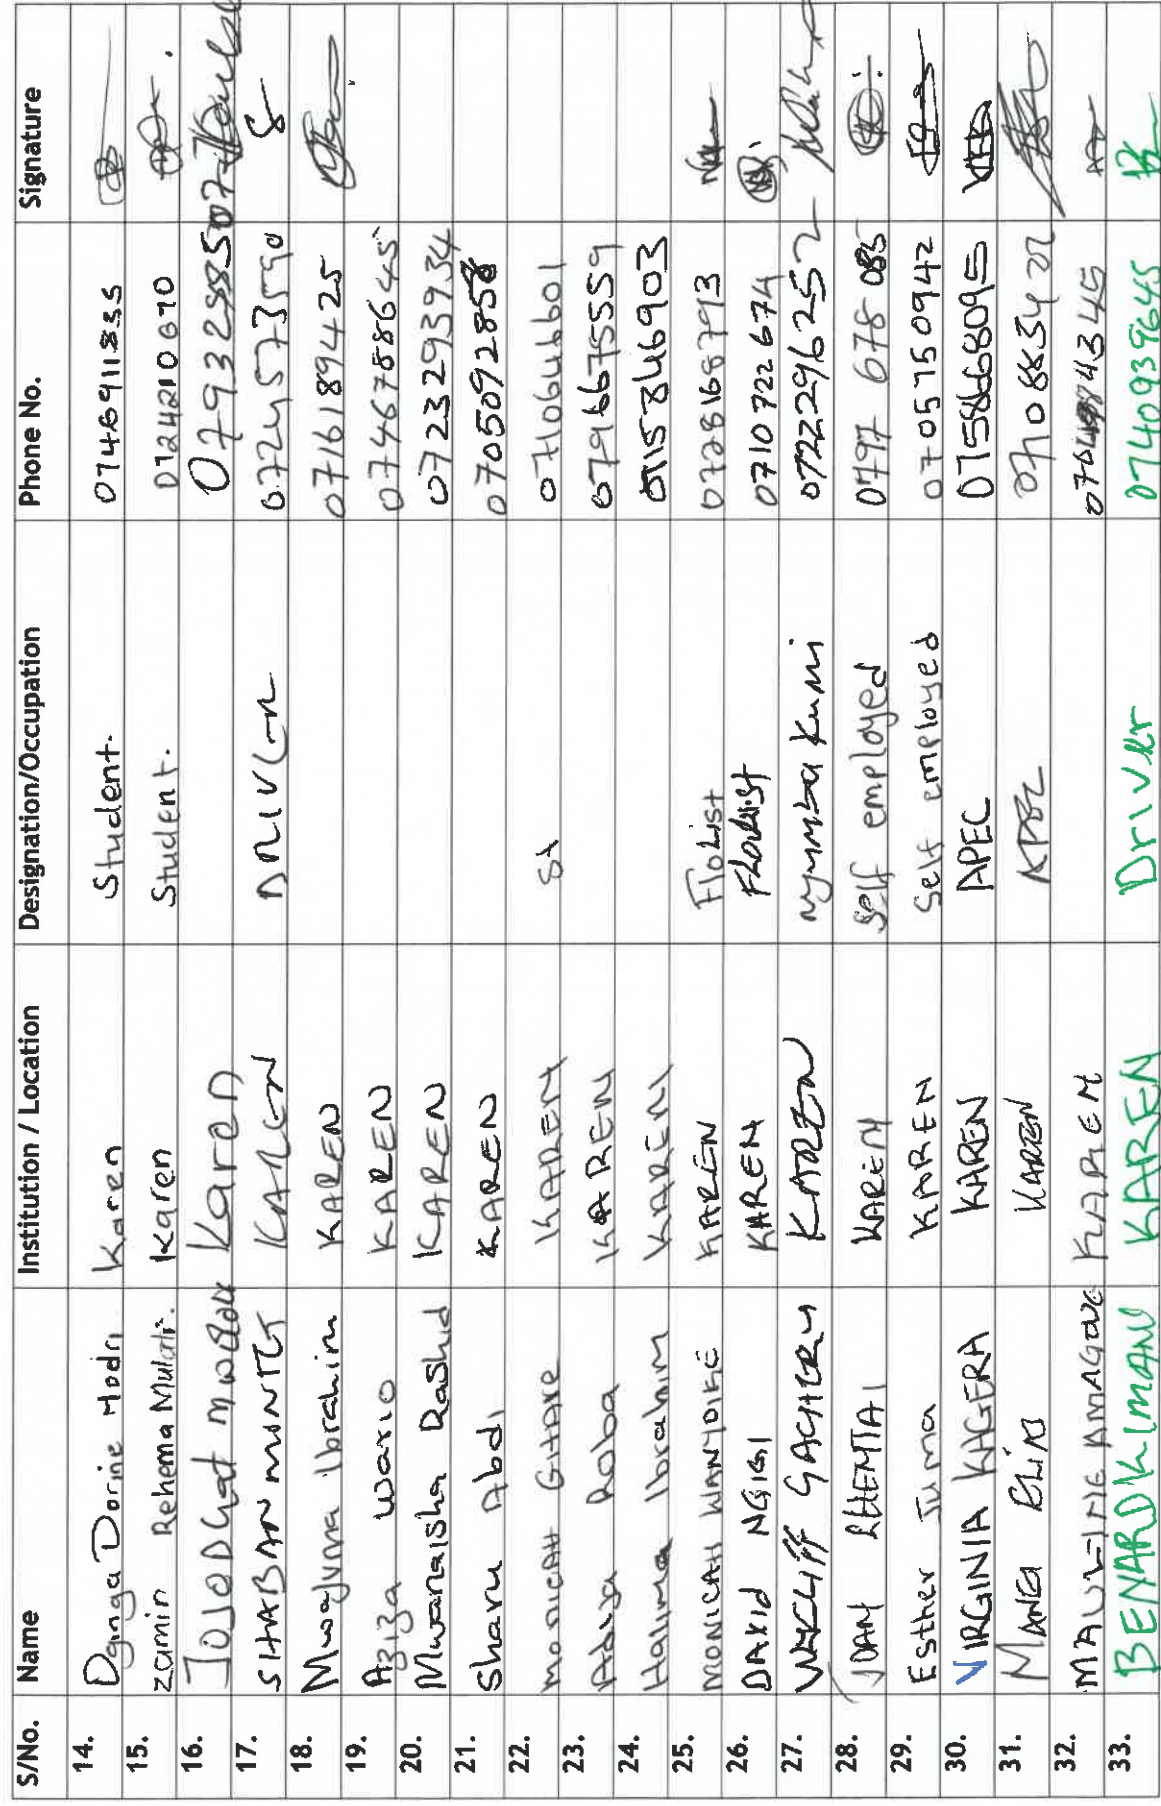 S/No. Name Institution / Location Designation/Occupation Phone No. Signature
14. Danga Dorine Hodri Karen Student. 0746911835
15. zamin Rehema Mulati. Karen Student. 0124210670
16. Karen
17. SHABAN KAREN DRIVER 0724573590
18. Mwajuma Ibrahim KAREN 0716189425
19. Aziza Wario KAREN 0746788645
20. Mwanaisha Rashid KAREN 0723293934
21. Sharu Abdi KAREN 0705092858
22. MONICAH GITHARE KAREN St
23. Adaya Roba KAREN 0796675559
24. Halima Ibrahim KAREN
25. MONICAH WANYOIKE KAREN FloList 0728168793
26. DAVID NGIGI KAREN 0710722674
27. WYCLIFF GACHERU KAREN nyumba Kumi 0722296252
28. JOAN CHEMTAI KAREN Self employed 0797 678 085
29. Esther Juma KAREN Self employed 0705750942
30. VIRGINIA KAGERA KAREN APEC
31. KAREN
32. KAREN
33. BENARD KIMANI KAREN Driver 0740939645